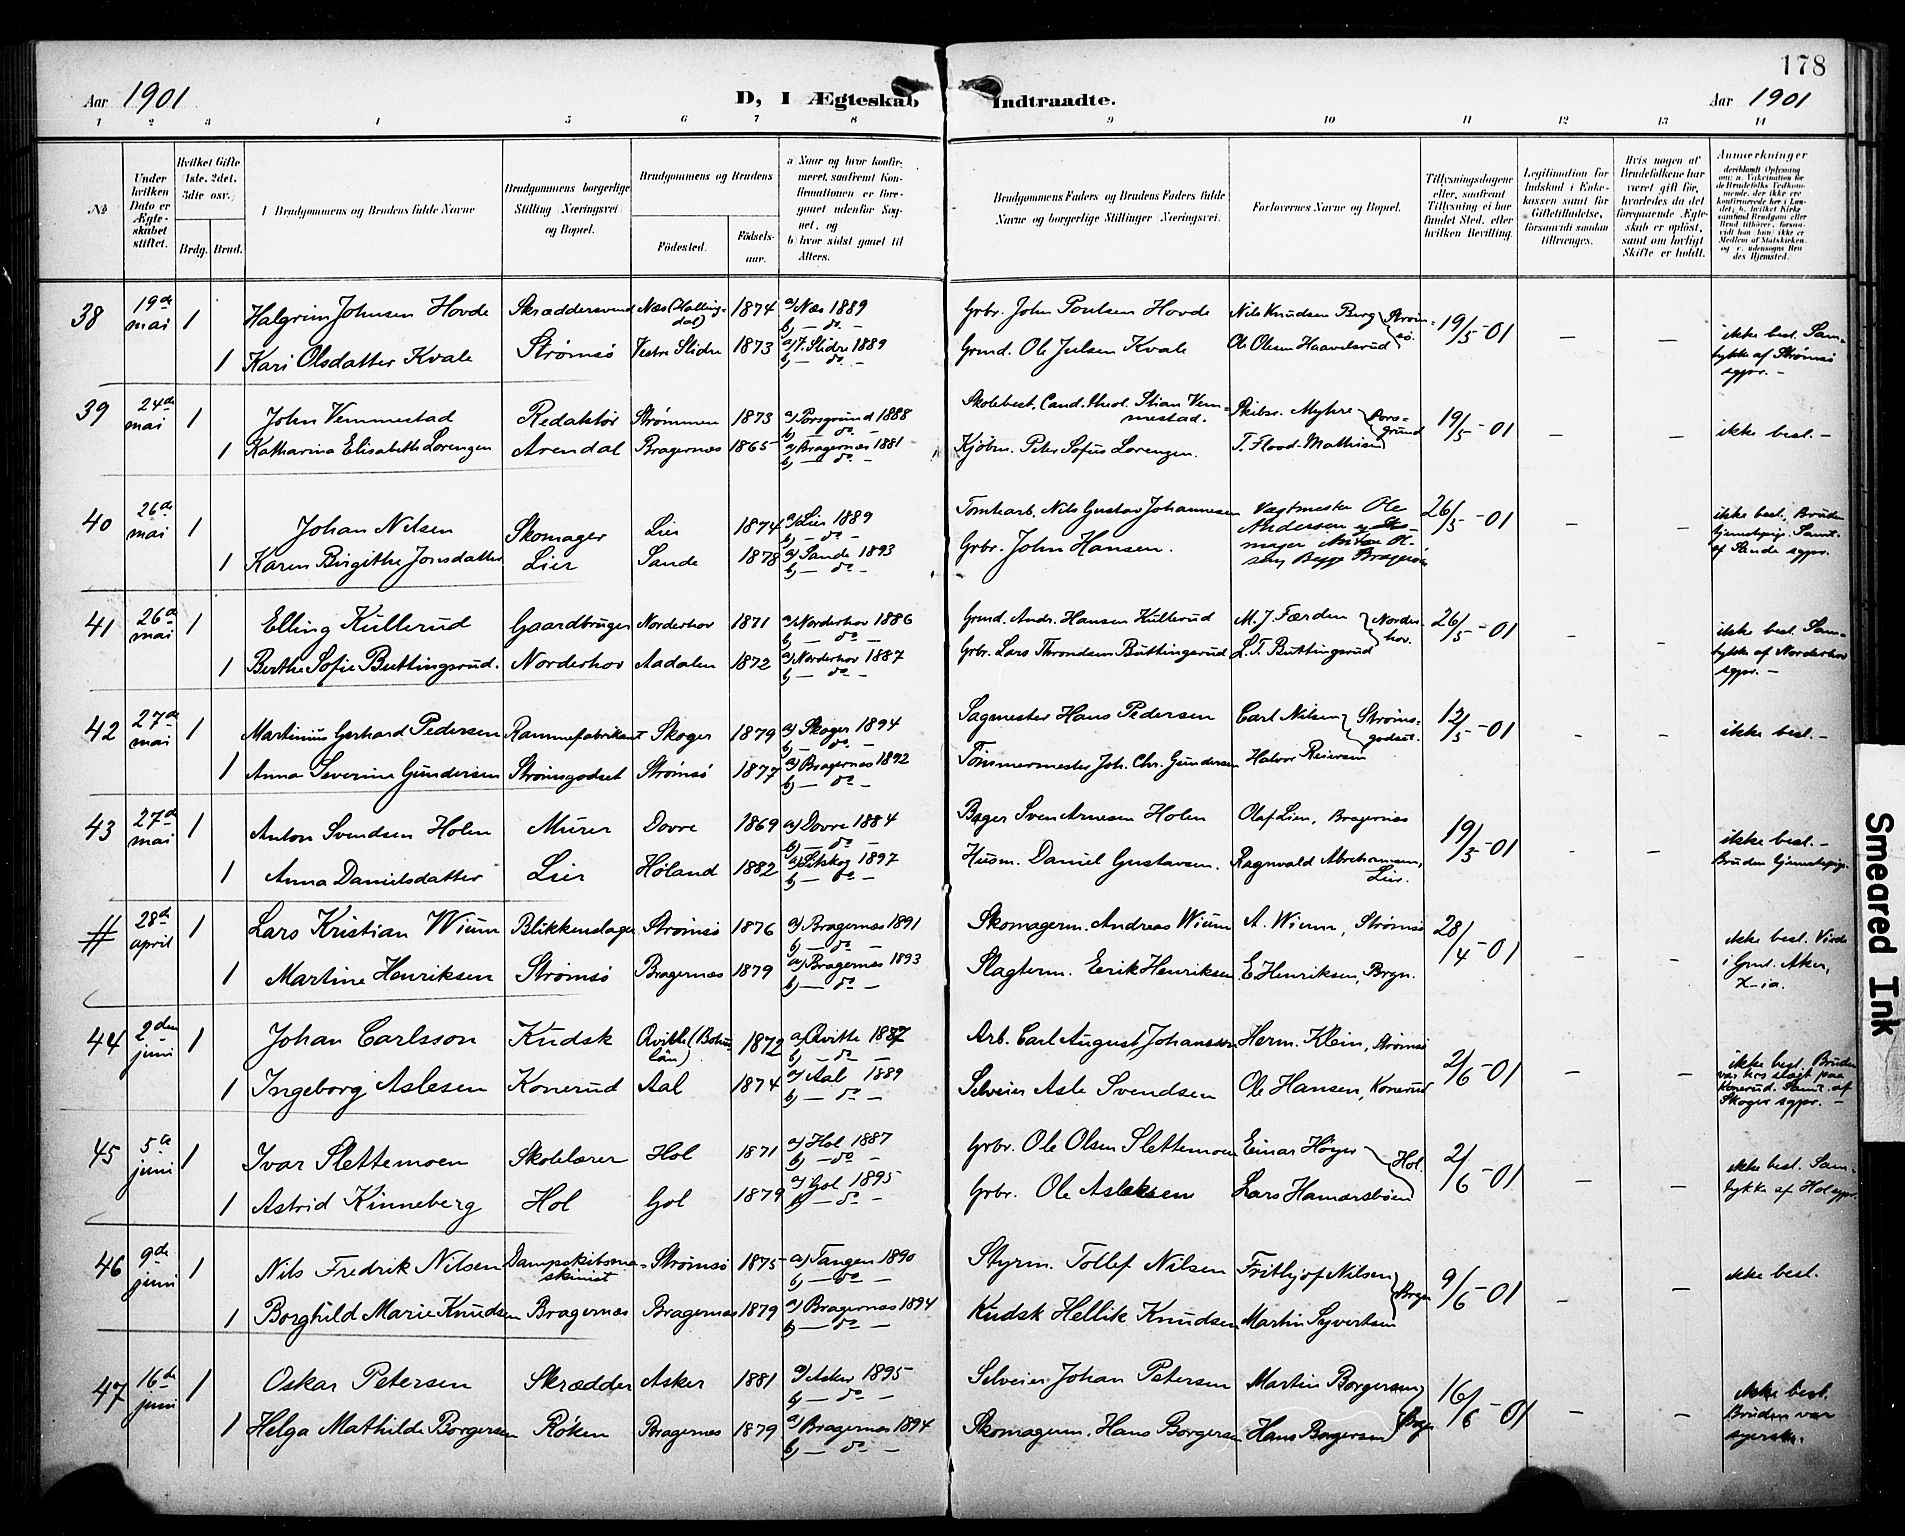 178
Aar 1901
D, I Ægteskab Indtraadte.
Aar 1901
1 2 3 4 5 6 7 8 9 10 11 12 13 14
№
Under hvilken Dato er Ægteskabet stiftet.
Hvilket Gifte (1ste, 2det, 3die osv.)
Brdg. Brud.
Brudgommens og Brudens fulde Navne
Brudgommens borgerlige Stilling (Næringsvei) og Bopæl.
Brudgommens og Brudens
Fødested.
Fødselsaar.
a Naar og hvor konfirmeret, saafremt Konfirmationen er foregaaet udenfor Sognet, og
b) hvor sidst gaaet til Alters.
Brudgommens Faders og Brudens Faders fulde Navne og borgerlige Stillinger (Næringsvei.
Forlovernes Navne og Bopæl.
Tillysningsdagene eller, saafremt Tillysning ei har fundet Sted, efter hvilken Bevilling
Legitimation for Indskud i Enkekassen samt for Giftetilladelse, forsaavidt saadan tiltrænges.
Hvis nogen af Brudefolkene har været gift før, hvorledes da det foregaaende Ægteskab er opløst, samt om lovligt Skifte er holdt.
Anmærkninger
38 19de mai 1 Halgrim Johnsen Hovde Skræddersvend Næs (Hallingdal) 1874 a) Næs 1889 b) — do — Grbr. John Poulsen Hovde Nils Knudsen Berg Strømsø. 19/5 - 01 — — ikke besl. Samtykke af Strømsø sgpr. —
1 Kari Olsdatter Kvale Strømsø Vestre Slidre 1873 a) V. Slidre 1889 b) — do — Grmd. Ole Julsen Kvale Ole Olsen Haavelsrud
39 24de mai 1 John Vemmestad Redaktør Strømmen 1873 a) Porsgrund 1888 b) — do — Skolebest. Cand. theol. Stian Vemmestad. Skibsr. Myhre Porsgrund 19/5 - 01 — — ikke besl. —
1 Katharina Elisabeth Lorengen Arendal Bragernæs 1865 a) Bragernæs 1881 b) — do — Kjøbm. Peter Sofus Lorengen. T. Flood-Mathisen
40 26de mai 1 Johan Nilsen Skomager Lier 1874 a) Lier 1889 b) — do — Tomtearb. Nils Gustav Johannesen Vagtmester Ole Andersen 26/5 - 01 — — ikke besl. Bruden tjenestepige. Samt. af Sande sgpr.
1 Karen Birgithe Jonsdatter Lier Sande 1878 a) Sande 1893 b) — do — Grbr. John Hansen.
41 26de mai 1 Elling Kullerud Gaardbruger Norderhov 1871 a) Norderhov 1886 b) — do — Grmd. Andr. Hansen Kullerud M. J. Færden Norderhov. 26/5 - 01 — — ikke besl. Samtykke af Norderhov sgpr. —
1 Berthe Sofie Buttingsrud. Norderhov Aadalen 1872 a) Norderhov 1887 b) — do — Grbr. Lars Throndsen Buttingsrud L. T. Buttingsrud
42 27de mai 1 Martinius Gerhard Pedersen Rammefabrikant Skoger 1879 a) Skoger 1894 b) — do — Sagmester Hans Pedersen Carl Nilsen Strømsgodset. 12/5 - 01 — — ikke besl. —
1 Anna Severine Gundersen Strømsgodset Strømsø 1877 a) Bragernæs 1892 b) — do — Tømmermester Joh. Chr. Gundersen Halvor Reiersen
43 27de mai 1 Anton Svendsen Holen Murer Dovre 1869 a) Dovre 1884 b) — do — Bager Sven Arnesen Holen Olaf Lien, Bragernæs 19/5 - 01 — — ikke besl. — Bruden tjenestepige.
1 Anna Danielsdatter Lier Høland 1882 a) Setskog 1897 b) — do — Husm. Daniel Gustavsen. Ragnvald Abrahamsen, Lier.
# 28de april 1 Lars Kristian Wium Blikkenslager Strømsø 1876 a) Bragernæs 1891 b) — do — Skomagerm. Andreas Wium A. Wium, Strømsø 28/4 - 01 — — ikke besl. Viede i Gml. Aker, X-ia.
1 Martine Henriksen Strømsø Bragernæs 1879 a) Bragernæs 1893 b) — do — Slagterm. Erik Henriksen E. Henriksen, Brgn.
44 2den juni 1 Johan Carlsson Kudsk Qville (Bohuslän) 1872 a) Qville 1887 b) — do — Arb. Carl August Johansson Herm. Klein, Strømsø 2/6 - 01 — — ikke besl. Bruden Konerud. Samt. af Skoger sgpr. —
1 Ingeborg Aslesen Konerud Aal 1874 a) Aal 1889 b) — do — Selveier Asle Svendsen Ole Hansen, Konerud
45 5te juni 1 Ivar Slettemoen Skolelærer Hol 1871 a) Hol 1887 b) — do — Grbr. Ole Olsen Slettemoen Einar Høyer Hol. 2/6 - 01 — — ikke besl. Samtykke af Hol sgpr.
1 Astrid Kinneberg Hol Gol 1879 a) Gol 1895 b) — do — Grbr. Ole Aslaksen Lars Hamarsbøen
46 9de juni 1 Nils Fredrik Nilsen Dampskibsmaskinist Strømsø 1875 a) Tangen 1890 b) — do — Styrm. Tollef Nilsen Frithjof Nilsen Brgn 9/6 - 01 — — ikke besl.
1 Borghild Marie Knudsen Bragernæs Bragernæs 1879 a) Bragernæs 1894 b) — do — Kudsk Hellik Knudsen Martin Syvertsen
47 16de juni 1 Oskar Petersen Skrædder Asker 1881 a) Asker 1895 b) — do — Selveier Johan Petersen Martin Borgersen Brgn 16/6 - 01 — — ikke besl. Bruden var syerske.
1 Helga Mathilde Borgersen Røken Bragernæs 1879 a) Bragernæs 1894 b) — do — Skomagerm. Hans Borgersen Hans Borgersen
Smeared Ink